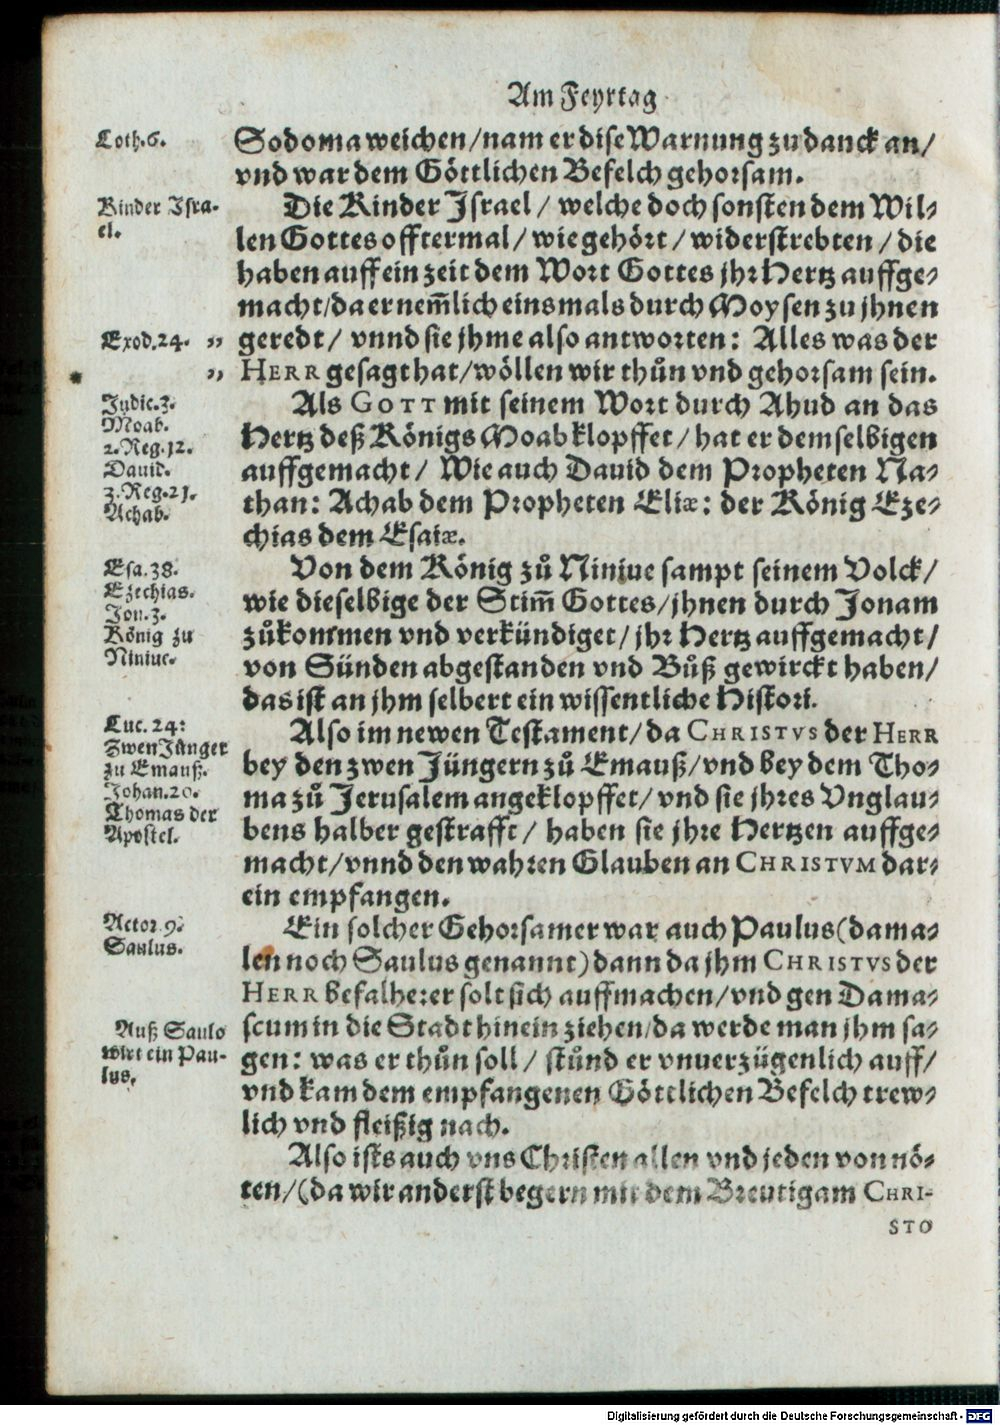 Am Feyrtag
Loth.6.
Sodoma weichen/nam er dise Warnung zu danck an/
vnd war dem Göttlichen Befelch gehorsam.
Kinder Isra-
el.
Die Kinder Jsrael / welche doch sonsten dem Wil-
len Gottes offtermal/ wie gehört / widerstrebten / die
haben auff ein zeit dem Wort Gottes jhr Hertz auffge-
macht/da er nem̃lich einsmals durch Moysen zu jhnen
Exod.24. „
geredt/ vnnd sie jhme also antworten: Alles was der
„
HERR gesagt hat/wöllen wir thůn vnd gehorsam sein.
Judic.3.
Moab.
2.Reg.12.
Dauid.
3.Reg.21.
Achab.
Als GOTT mit seinem Wort durch Ahud an das
Hertz deß Königs Moab klopffet/ hat er demselbigen
auffgemacht/ Wie auch Dauid dem Propheten Na-
than: Achab dem Propheten Eliæ: der König Eze-
chias dem Esaiæ.
Esa.38.
Ezechias.
Jon.3.
König zu
Niniue.
Von dem König zů Niniue sampt seinem Volck/
wie dieselbige der Stim̃ Gottes/jhnen durch Jonam
zůkommen vnd verkündiget/ jhr Hertz auffgemacht/
von Sünden abgestanden vnd Bůß gewirckt haben/
das ist an jhm selbert ein wissentliche Histori.
Luc.24:
Zwen Jünger
zu Emauß.
Johan.20.
Thomas der
Apostel.
Also im newen Testament/ da CHRISTVS der HERR
bey den zwen Jüngern zů Emauß/vnd bey dem Tho-
ma zů Jerusalem angeklopffet/ vnd sie jhres Vnglau-
bens halber gestrafft/ haben sie jhre Hertzen auffge-
macht/vnnd den wahren Glauben an CHRISTVM dar-
ein empfangen.
Actor.9.
Saulus.
Ein solcher Gehorsamer war auch Paulus(dama-
len noch Saulus genannt) dann da jhm CHRISTVS der
HERR befalhe:er solt sich auffmachen/vnd gen Dama-
Auß Saulo
wirt ein Pau-
lus.
scum in die Stadt hinein ziehen/da werde man jhm sa-
gen: was er thůn soll/ stůnd er vnuerzügenlich auff/
vnd kam dem empfangenen Göttlichen Befelch trew-
lich vnd fleißig nach.
Also ists auch vns Christen allen vnd jeden von nö-
ten/(da wir anderst begern mit dem Breutigam CHRI-
STO
Digitalisierung gefördert durch die Deutsche Forschungsgemeinschaft - DFG